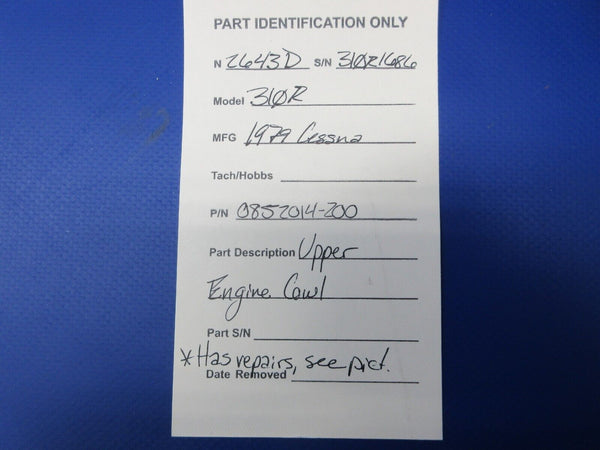 PART IDENTIFICATION ONLY
N 2643D S/N 310R1686
Model 310R
MFG 1979 Cessna
Tach/Hobbs
P/N 0852014-200
Part Description Upper
Engine Cowl
Part S/N
*Has repairs, see pict.
Date Removed